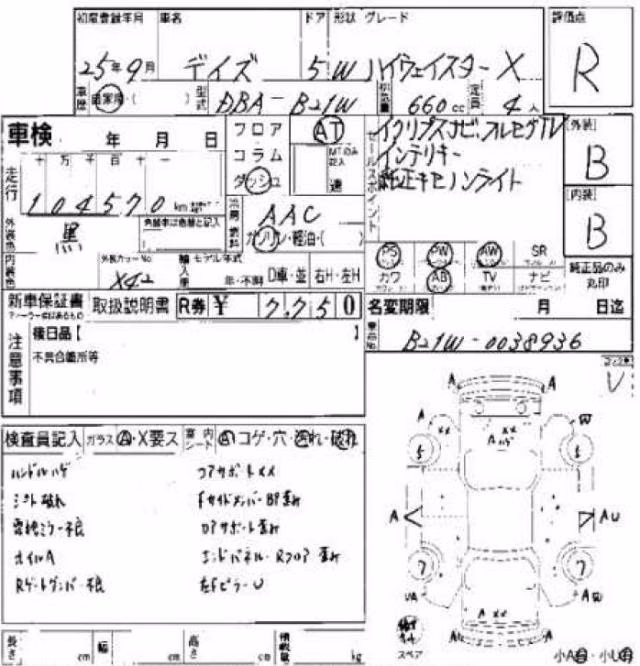 初度登録年月 車名 ドア 形状 グレード 評価点
25年9月 デイズ 5 W ハイウェイスター X R
車歴 自家用・( ) 型式 DBA-B21W 排気量 660cc 定員 4人
車検 年 月 日 フロア AT セールスポイント イクリプスナビ・フルセグTV [外装]
コラム MTのみ記入 インテリキー B
ダッシュ 速 純正キセノンライト
走行 十 万 千 百 十 一 [内装]
104570 km 冷房 AAC B
外装色 黒 色替車は色替と記入 燃料 ガソリン・軽油・( )
PS PW AW SR 純正品のみ丸印
カワ AB TV ナビ
内装色 外装カラーNo X42 輸入車 モデル年式 年・不明 D車・並 右H・左H
新車保証書 取扱説明書 R券 ¥ 7,750 名変期限 月 日迄
ディーラー印があるもの
車台No. B21W-0038936
注意事項 後日品【 】
不具合箇所等
V
検査員記入 ガラス A・X要ス 室内シート A コゲ・穴・汚れ・破れ
ハンドルハゲ コアサポートXX
シート破れ FサイドメンバーBP歪み
電格ミラー不良
オイルA エンドパネル・Rフロア歪み
Rゲートダンパー不良 左Fピラー U
A A
A XX XX W
A ハゲ
5 5
A A U
7 7
UA A W
A XX
スペア
長さ cm 幅 cm 高さ cm 積載量 kg
小A有・小U有